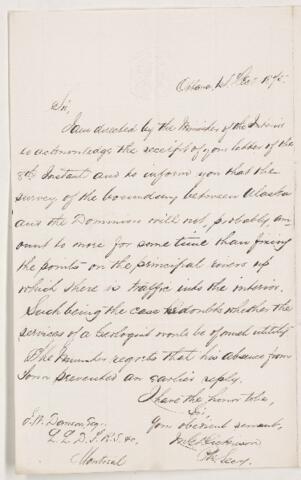 Ottawa, Decr 1875.
Sir,
I am directed by the Minister of the Interior
to acknowledge the receipt of your letter of the
8th Instant and to inform you that the
survey of the boundary between Alaska
and the Dominion will not, probably, am-
ount to more for some time than fixing
the points on the principal rivers up
which there is traffic into the interior.
Such being the case he doubts whether the
services of a Geologist would be of much utility.
The Minister regrets that his absence from
town prevented an earlier reply.
I have the honor to be,
Sir,
Your obedient servant,
J. W. Dawson Esq.
L.L.D. F.R.S. &c.
Montreal